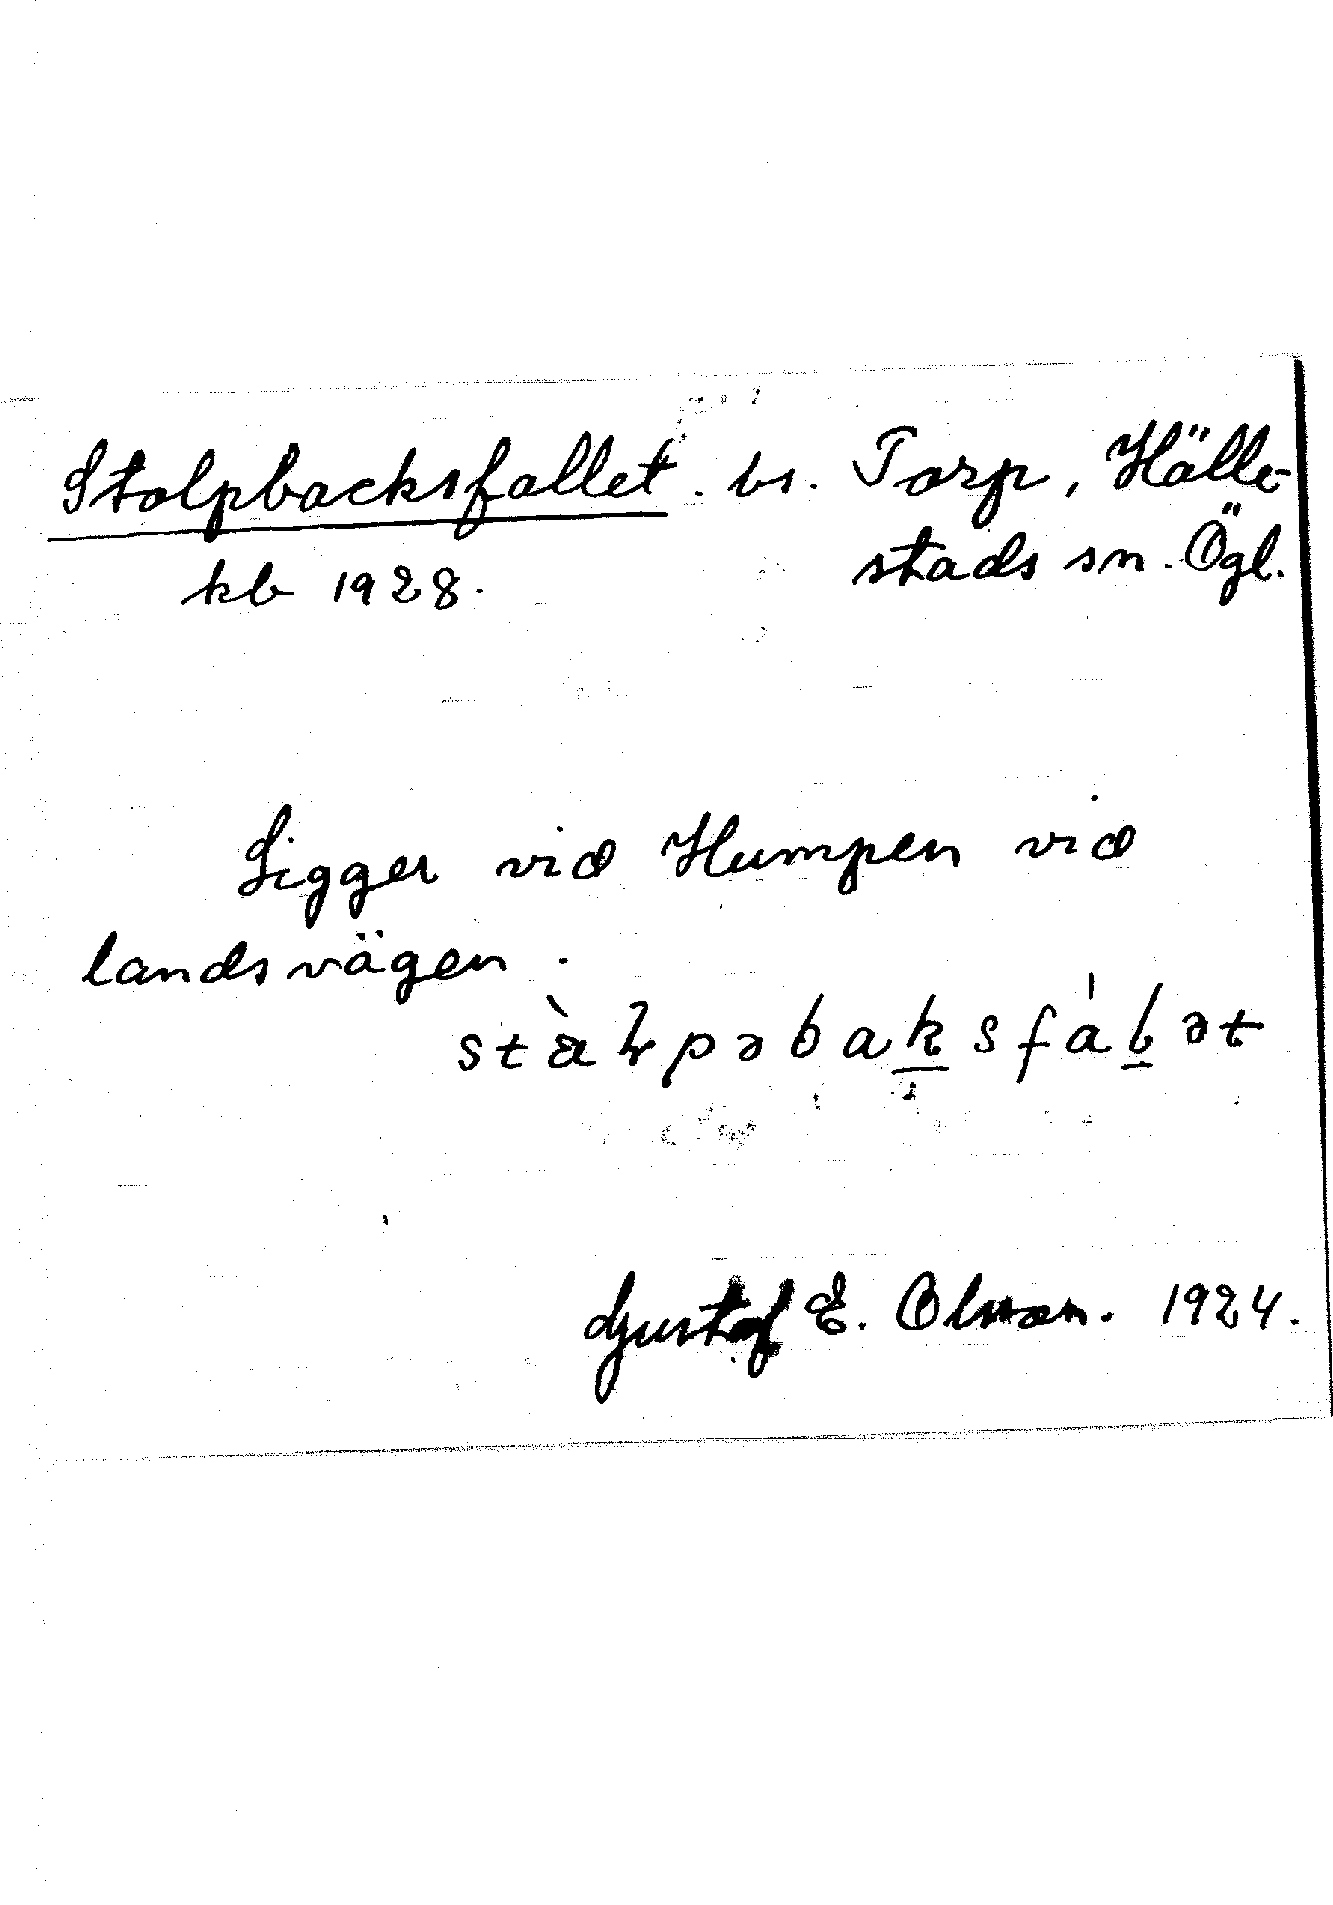 Stolpbacksfallet. bs. Torp, Hälle-
kb 1928. stads sn. Ögl.
Ligger vid Humpen vid
landsvägen.
Gustaf E. Olsson. 1924.